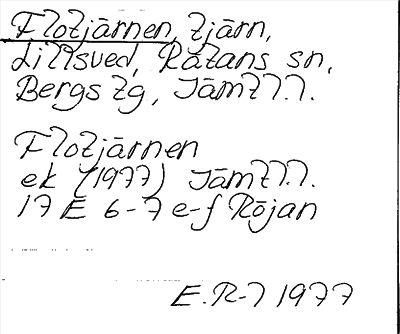 Flotjärnen, tjärn,
Lillsved, Rätans sn,
Bergs tg, Jämtl.
Flotjärnen
ek (1977) Jämtl.
17 E 6-7 e-f Röjan
E.R-7 1977